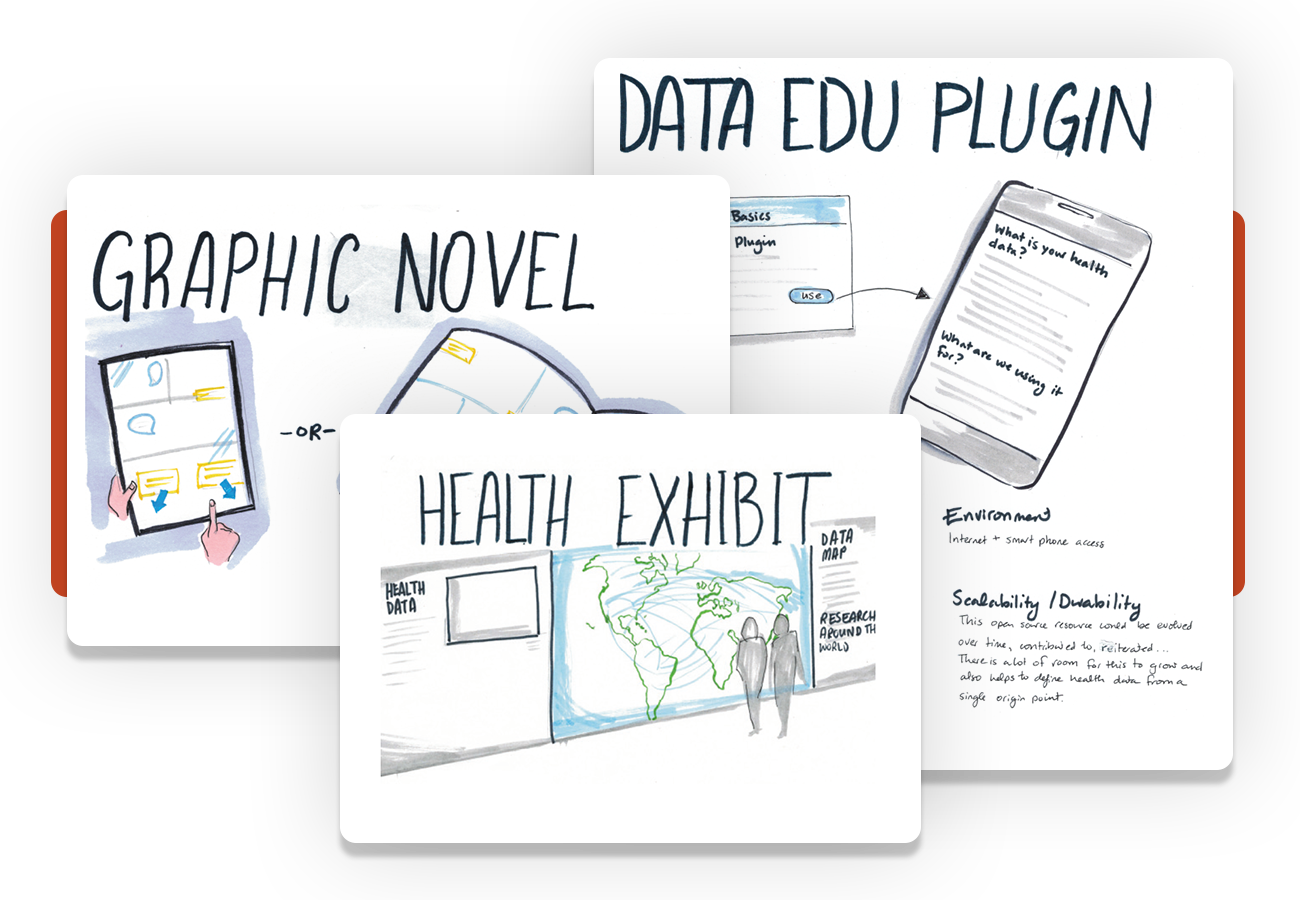 DATA EDU PLUGIN
Basics
Plugin
use
What is your health
data?
What are we using it
for?
Environment
Internet + smart phone access
Scalability / Durability
This open source resource would be evolved
over time, contributed to, reiterated...
There is a lot of room for this to grow and
also helps to define health data from a
single origin point.
GRAPHIC NOVEL
-OR-
HEALTH EXHIBIT
HEALTH
DATA
DATA
MAP
RESEARCH
AROUND TH
WORLD